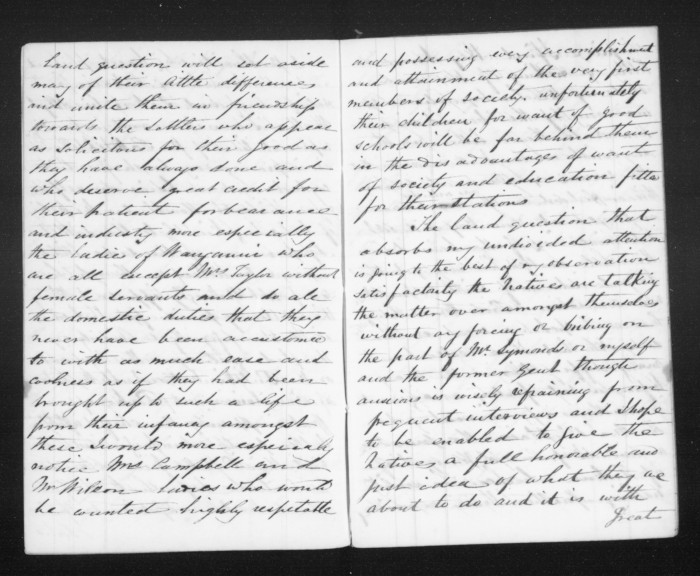 land question will set aside
many of their little differences
and unite them in friendship
towards the Settlers who appear
as solicitous for their good as
they have always done and
who deserve great credit for
their patient forbearance
and industry more especially
the ladies of Wanganui who
are all except Mrs Taylor without
female servants and do all
the domestic duties that they
never have been accustomed
to with as much ease and
coolness as if they had been
brought up to such a life
from their infancy amongst
these I would more especially
notice Mrs Campbell and
Mrs Wilson ladies who would
be counted highly respectable
and possessing every accomplishment
and attainment of the very first
members of society. unfortunately
their children for want of good
schools will be far behind them
in the disadvantages of want
of society and education fitted
for their stations
The land question that
absorbs my undivided attention
is going to the best of my observation
satisfactorily the Natives are talking
the matter over amongst themselves
without any forcing or bribing on
the part of Mr Symonds or myself
and the former Gent though
anxious is wisely refraining from
frequent interviews and I hope
to be enabled to give the
Natives a full honorable and
just idea of what they are
about to do and it is with
Great